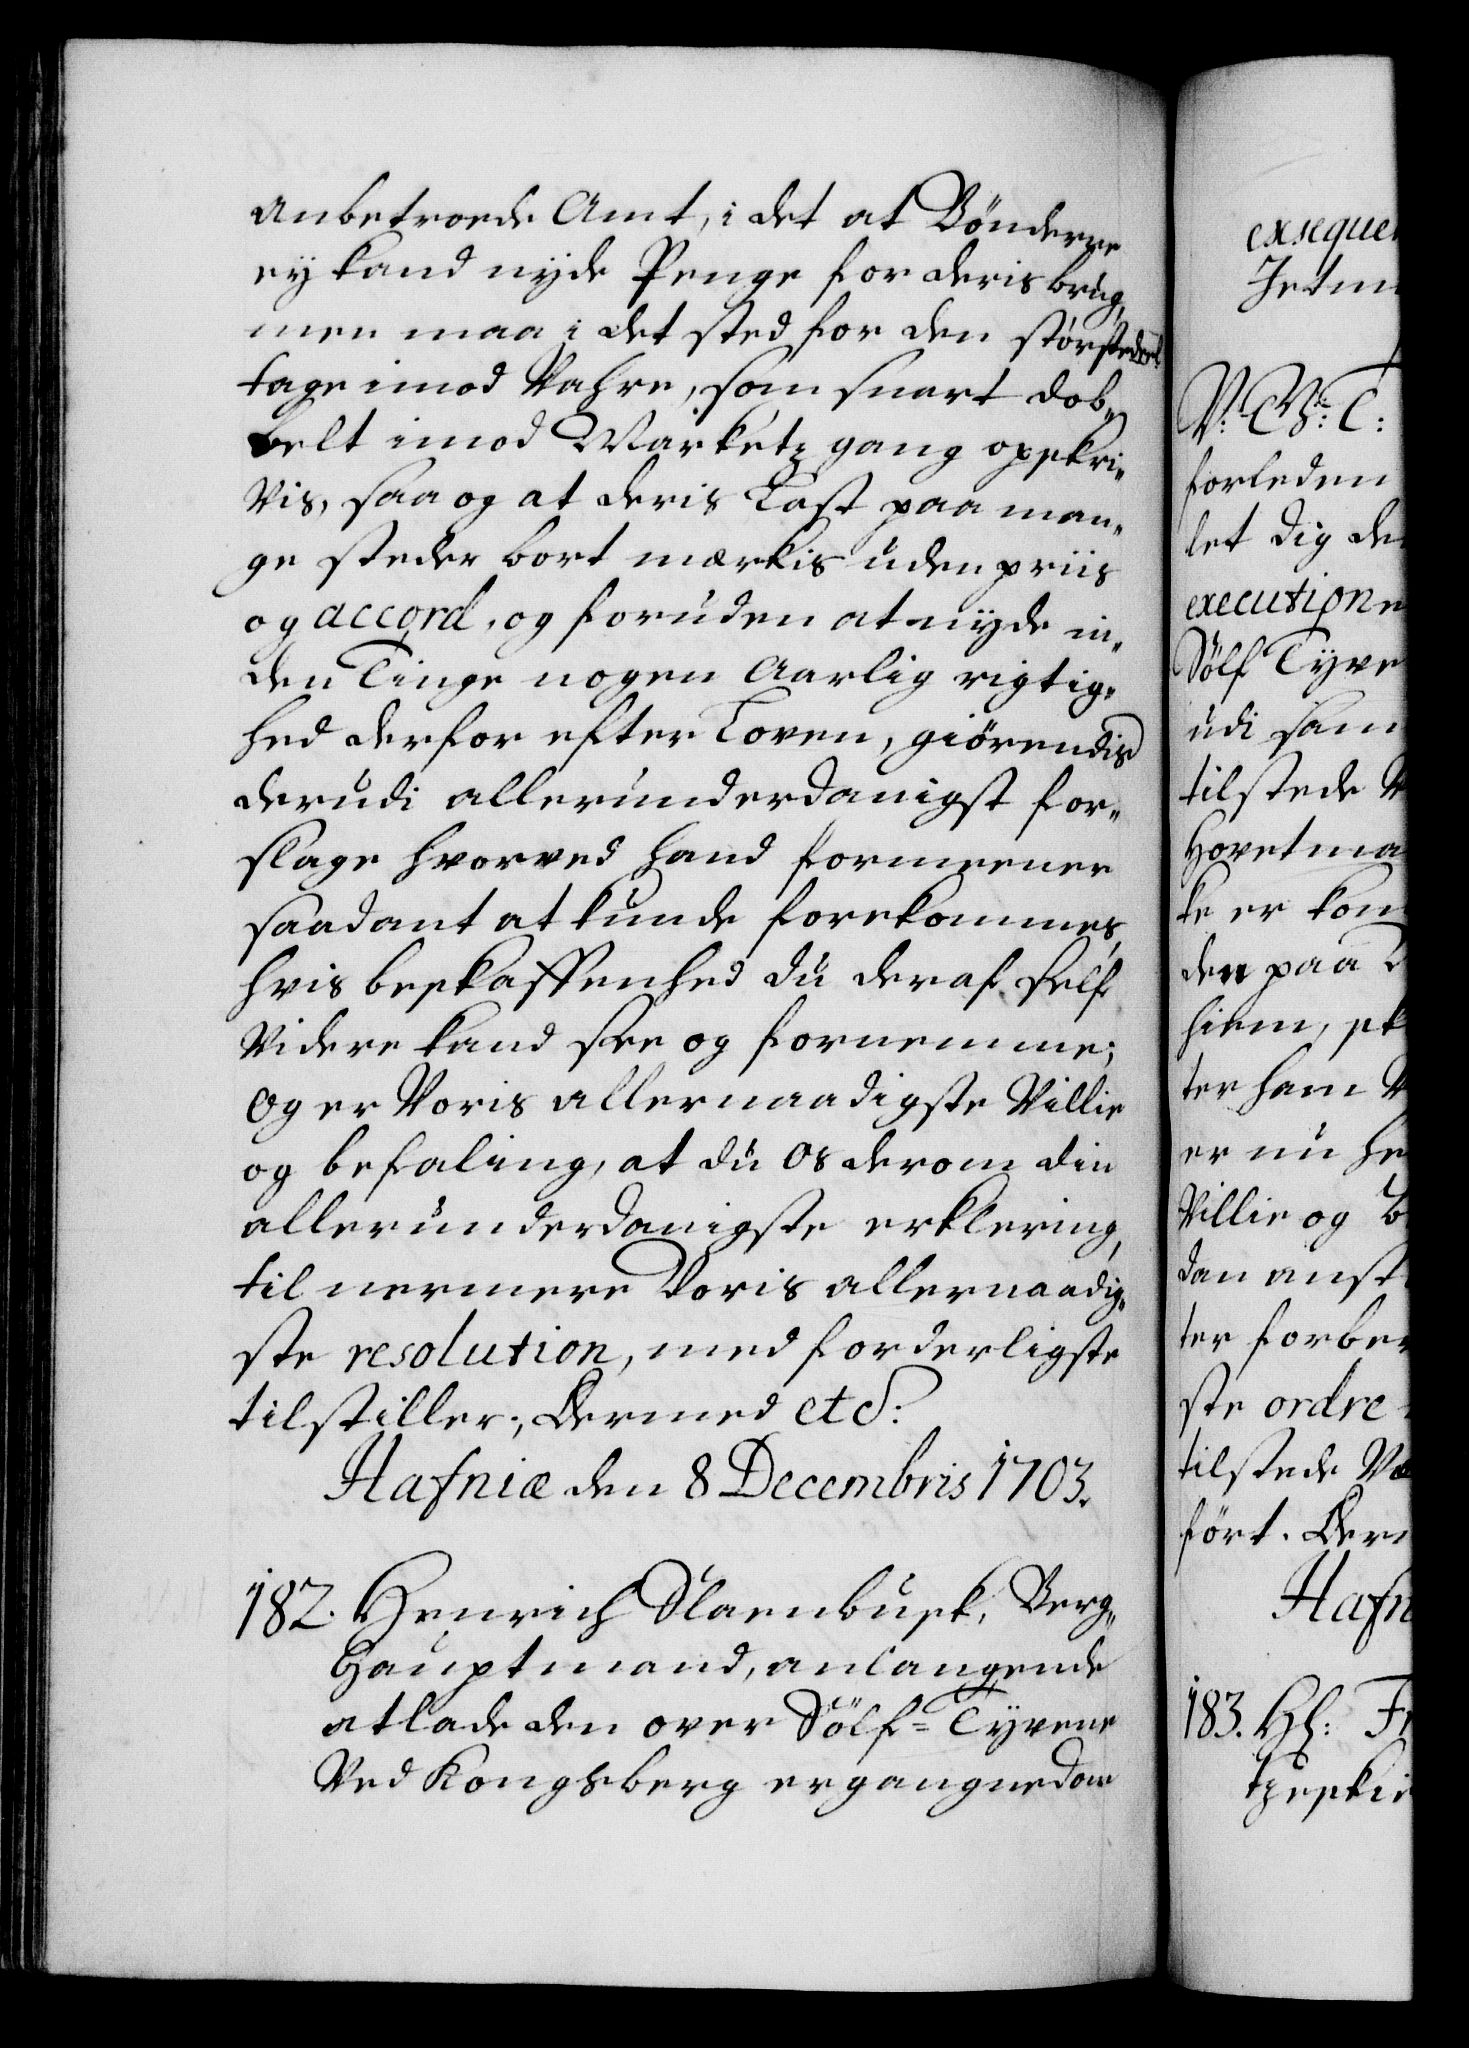 anbetroede Amt, i det at Bønderne
ey kand nyde Penge for deris brug,
men maa i det sted for den størstedeel
tage imod Vahre, som snart dob„
belt imod Marketz gang opskri„
vis, saa og at deris Last paa man„
ge steder bort merkis uden priis
og accord, og foruden at nyde in„
den Tinge nogen Aarlig rigtig„
hed derfor efter Loven, giørendis
derudi allerunderdanigst for„
slage hvorved hand formeener
saadant at kunde forekommes,
hvis beskaffenhed du deraf self
videre kand see og fornemme;
Og er Voris allernaadigste Villie
og befaling, at du Os derom din
allerunderdanigste erklering,
til nermere Voris allernaadig„
ste resolution, med forderligste
tilstiller; Dermed etc:
Hafniæ den 8 Decembris 1703.
182. Henrich Slaenbusk, Berg„
Hauptmand, anlangende
at lade den over Sölf= Tyvene
Ved Kongsberg ergangne dom
exseque
V: G: T:
forleden
let dig de
execution
Sölf Tyve
udi sam
tilstede
Hovetma
ke er kom
den paa
hiem, sk
ter ham
er nu he
Villie og B
dan anst
ter forbe
ste ordre
tilstede
ført. Derm
Hafn
183. Hl: Fr